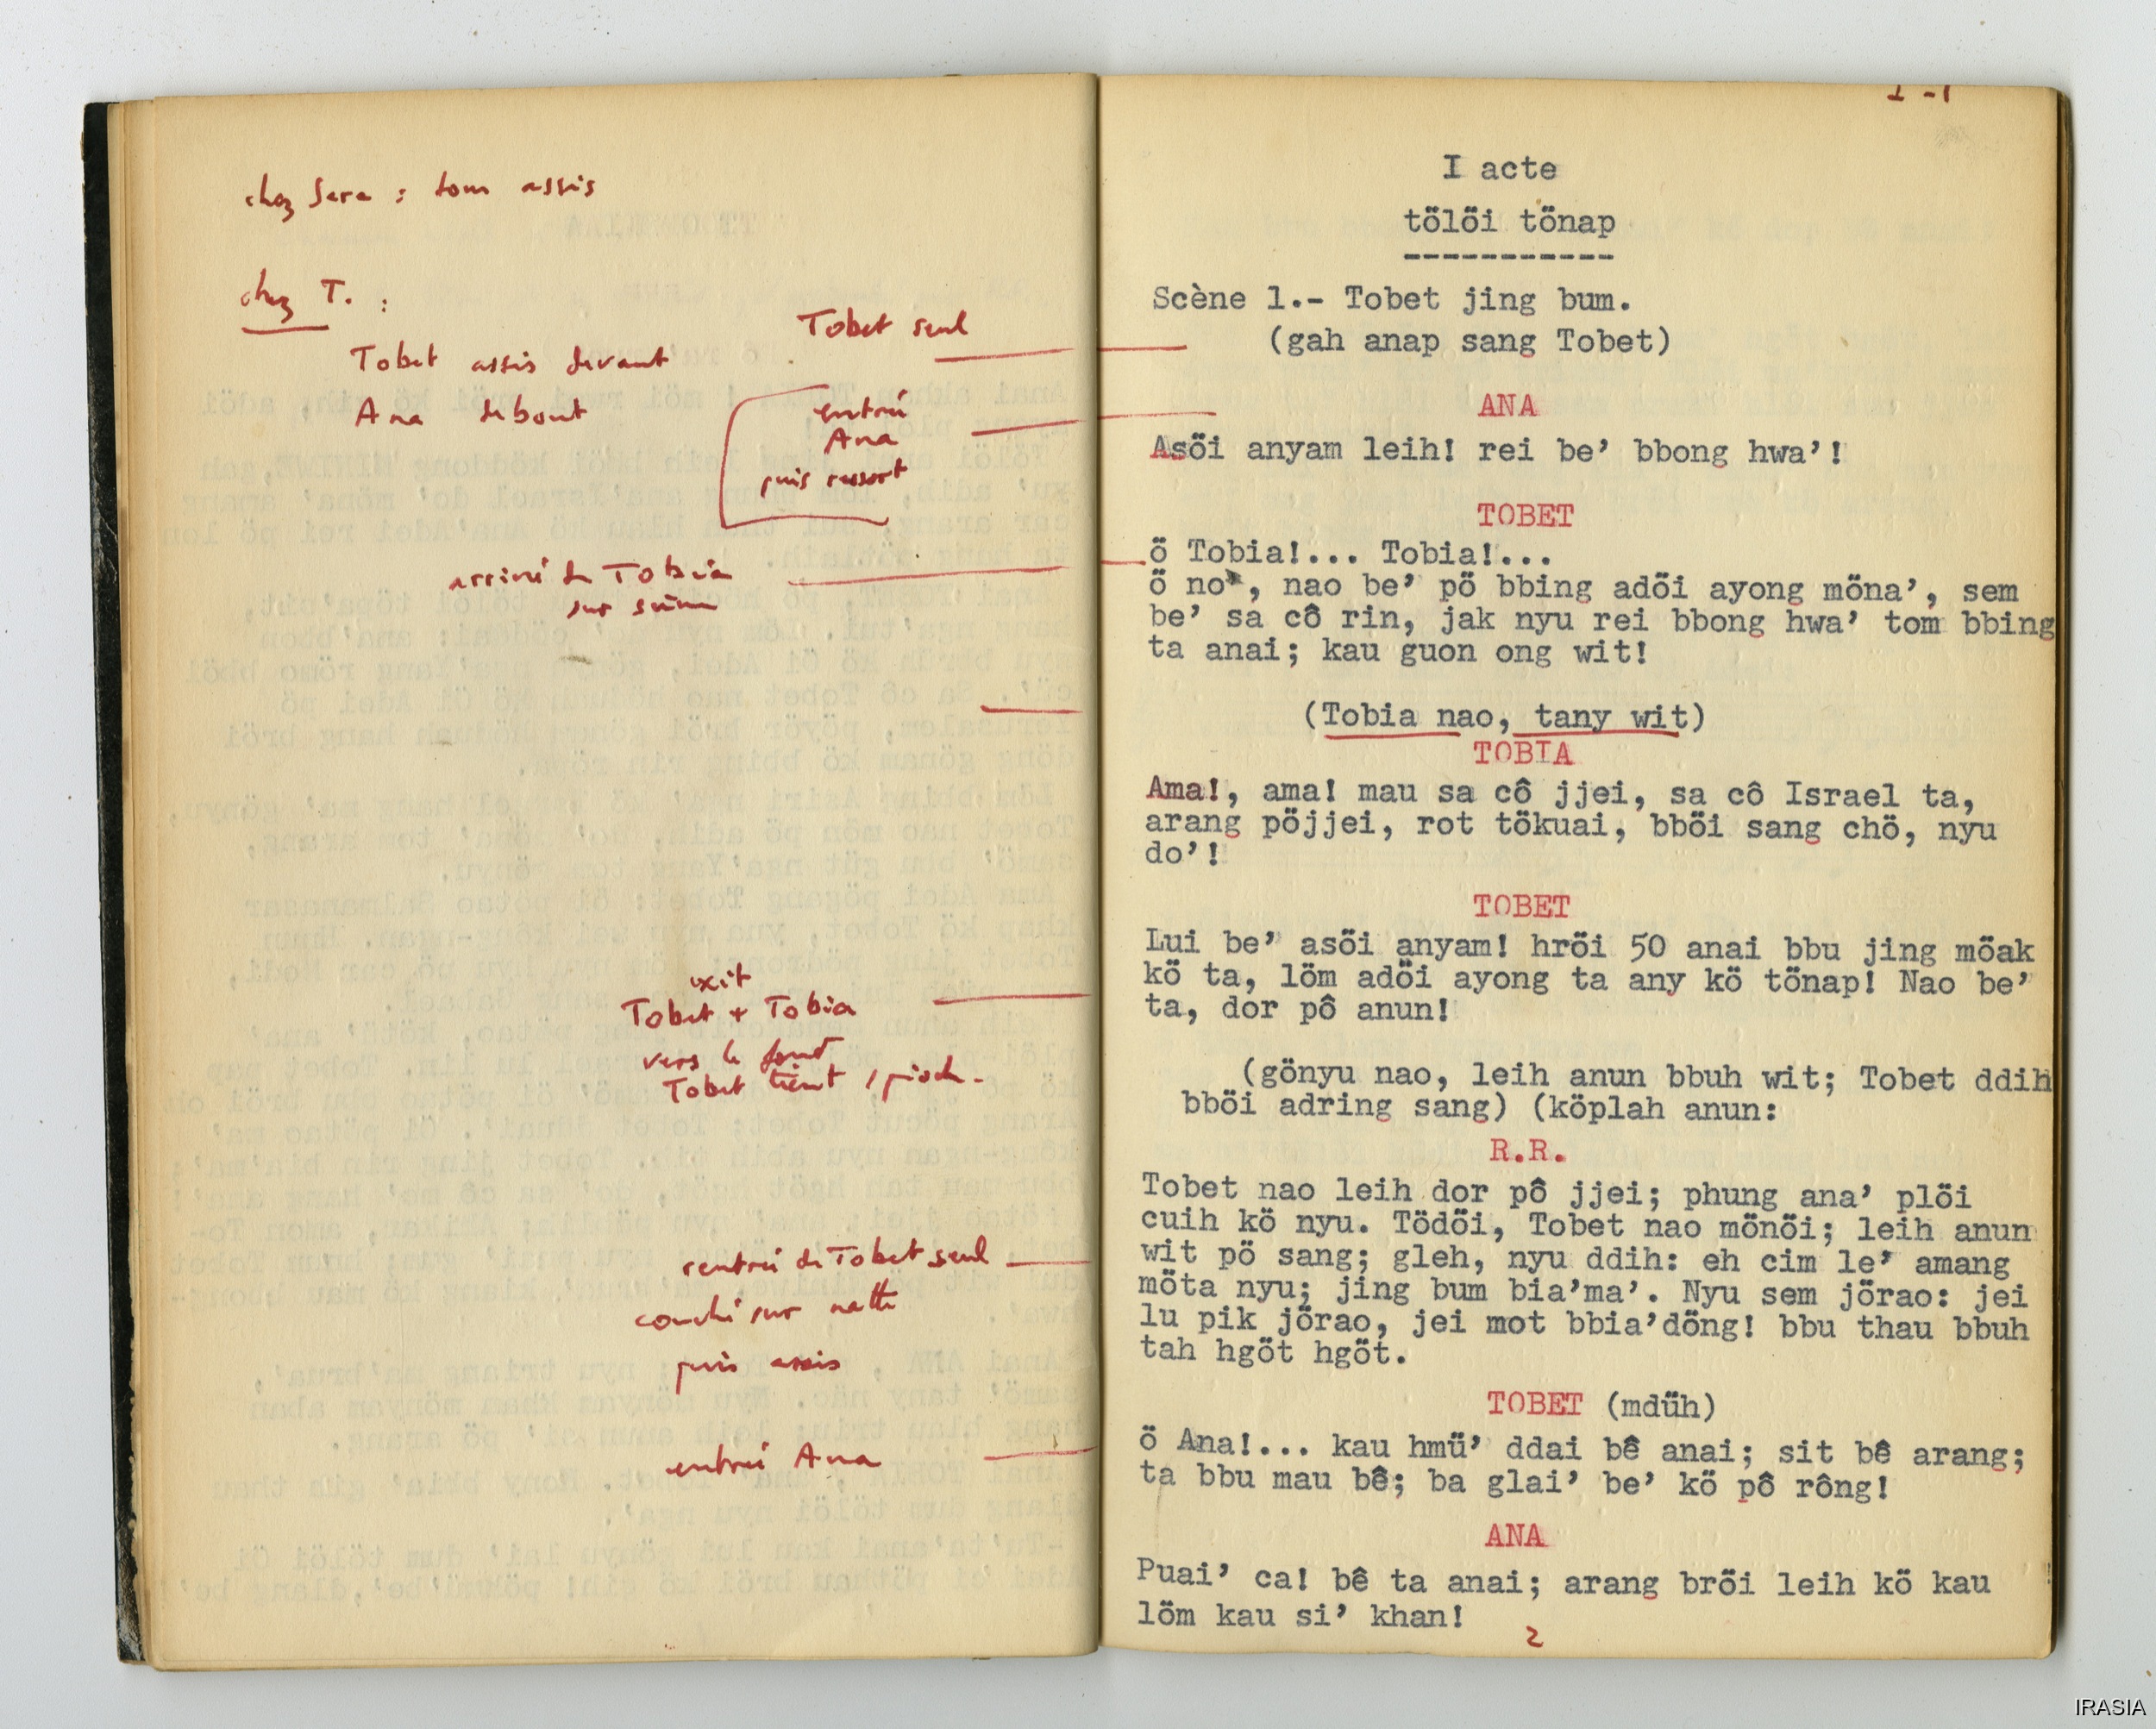 chez Sara : tous assis
chez T. :
Tobet assis devant
Ana debout
Tobet seul
entrée
Ana
puis ressort
arrivée de Tobia
sur scène
exit
Tobet + Tobia
vers le fond
Tobet tient
rentrée de Tobet seul
couché sur natte
puis assis
entrée Ana
I - 1
I acte
tölöi tönap
-----------
Scène 1.- Tobet jing bum.
(gah anap sang Tobet)
ANA
Asöi anyam leih! rei be’ bbong hwa’!
TOBET
ö Tobia!... Tobia!...
ö no’, nao be’ pö bbing adöi ayong möna’, sem
be’ sa cô rin, jak nyu rei bbong hwa’ tom bbing
ta anai; kau guon ong wit!
(Tobia nao, tany wit)
TOBIA
Ama!, ama! mau sa cô jjei, sa cô Israel ta,
arang pöjjei, rot tökuai, bböi sang chö, nyu
do’!
TOBET
Lui be’ asöi anyam! hröi 50 anai bbu jing möak
kö ta, löm adöi ayong ta any kö tönap! Nao be’
ta, dor pô anun!
(gönyu nao, leih anun bbuh wit; Tobet ddih
bböi adring sang) (köplah anun:
R.R.
Tobet nao leih dor pô jjei; phung ana’ plöi
cuih kö nyu. Tödöi, Tobet nao mönöi; leih anun
wit pö sang; gleh, nyu ddih: eh cim le’ amang
möta nyu; jing bum bia’ma’. Nyu sem jörao: jei
lu pik jörao, jei mot bbia’döng! bbu thau bbuh
tah hgöt hgöt.
TOBET (mdüh)
ö Ana!... kau hmü’ ddai bê anai; sit bê arang;
ta bbu mau bê; ba glai’ be’ kö pô rông!
ANA
Puai’ ca! bê ta anai; arang bröi leih kö kau
löm kau si’ khan!
2
IRASIA